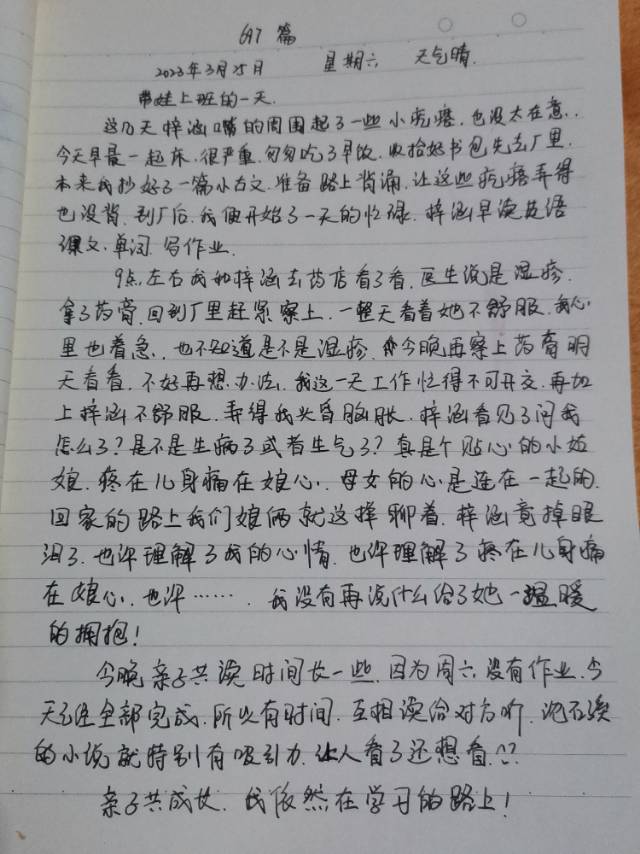 697篇
2023年3月25日 星期六 天气晴.
带娃上班的一天.
这几天梓涵嘴的周围起了一些小疙瘩.也没太在意.
今天早晨一起床.很严重.匆匆吃了早饭.收拾好书包先去厂里.
本来我抄好了一篇小古文.准备路上背诵.让这些疙瘩弄得
也没背.到厂后.我便开始了一天的忙碌.梓涵早读英语
课文.单词.写作业.
9点左右我和梓涵去药店看了看.医生说是湿疹.
拿了药膏.回到厂里赶紧察上.一整天看着她不舒服.我心
里也着急.也不知道是不是湿疹.今晚再察上药膏明
天看看.不好再想办法.我这一天工作忙得不可开交.再加
上梓涵不舒服.弄得我头昏脑胀.梓涵看见了问我
怎么了?是不是生病了或者生气了?真是个贴心的小姑
娘.疼在儿身痛在娘心.母女的心是连在一起的.
回家的路上我们娘俩就这样聊着.梓涵竟掉眼
泪了.也许理解了我的心情.也许理解了疼在儿身痛
在娘心.也许…….我没有再说什么给了她一温暖
的拥抱!
今晚亲子共读时间长一些.因为周六没有作业.今
天已经全部完成.所以有时间.互相读给对方听.沈石溪
的小说就特别有吸引力.让人看了还想看.
亲子共成长.我依然在学习的路上!